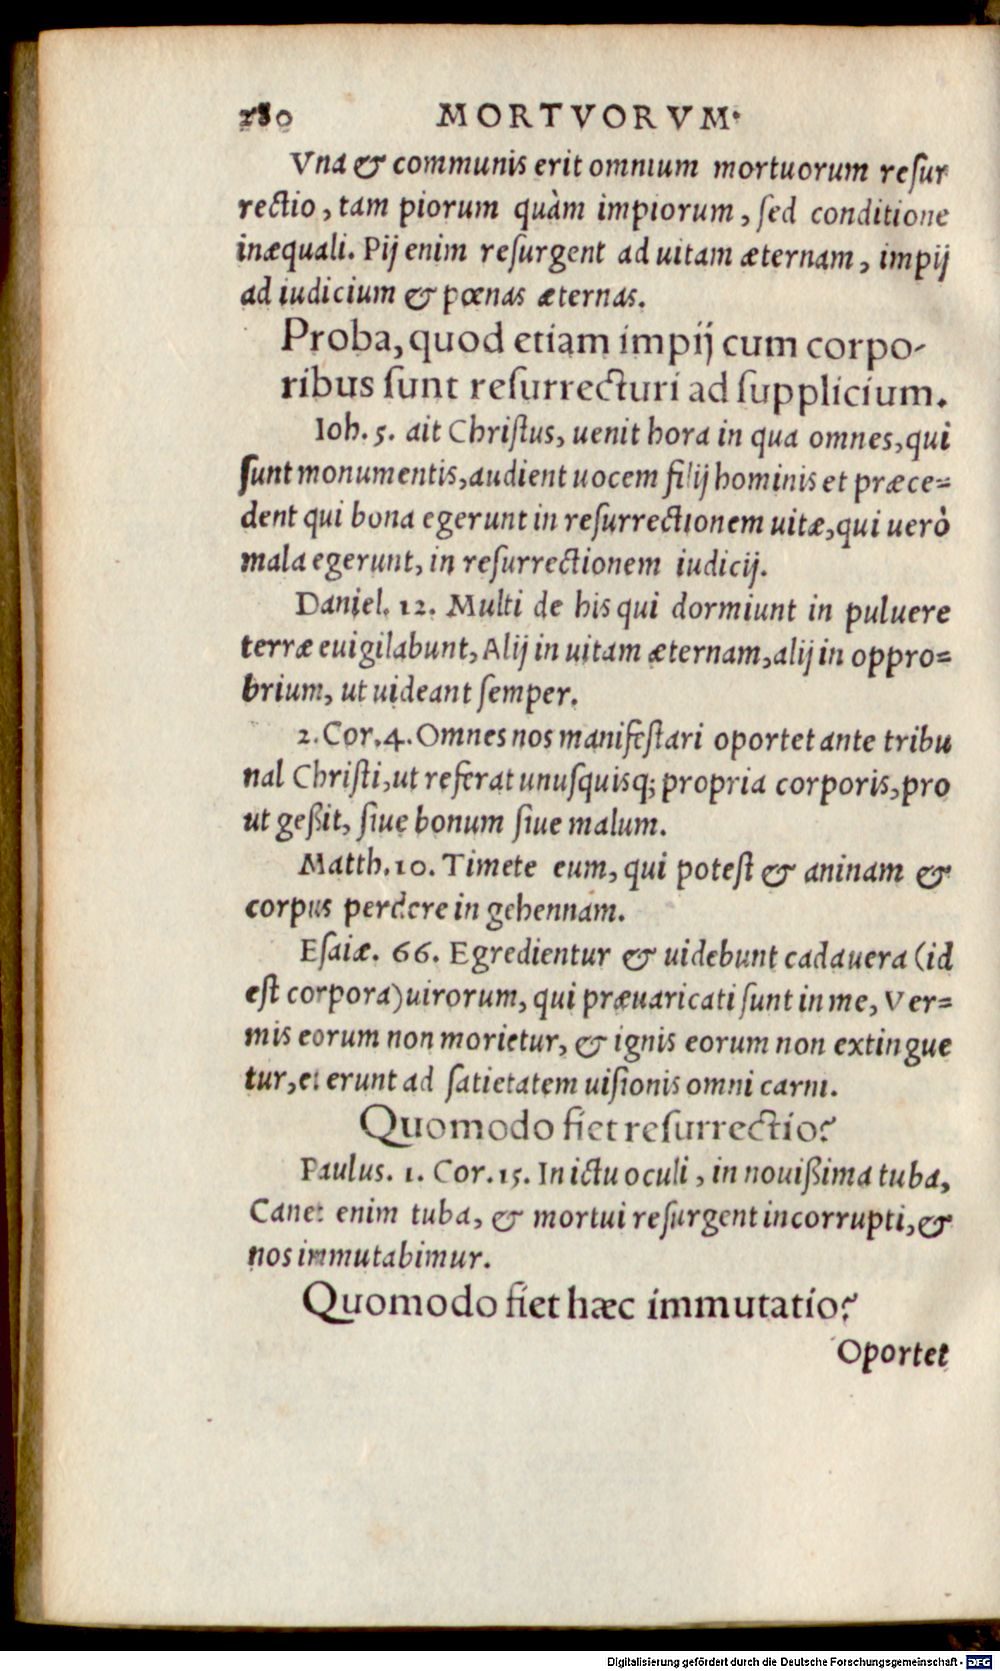 280 MORTVORVM.
Vna & communis erit omnium mortuorum resur
rectio, tam piorum quàm impiorum, sed conditione
inæquali. Pij enim resurgent ad uitam æternam, impij
ad iudicium & pœnas æternas.
Proba, quod etiam impij cum corpo-
ribus sunt resurrecturi ad supplicium.
Ioh. 5. ait Christus, uenit hora in qua omnes, qui
sunt monumentis, audient uocem filij hominis et præce=
dent qui bona egerunt in resurrectionem uitæ, qui uerò
mala egerunt, in resurrectionem iudicij.
Daniel. 12. Multi de his qui dormiunt in puluere
terræ euigilabunt, Alij in uitam æternam, alij in oppro=
brium, ut uideant semper.
2. Cor. 4. Omnes nos manifestari oportet ante tribu
nal Christi, ut referat unusquisq; propria corporis, pro
ut geßit, siue bonum siue malum.
Matth. 10. Timete eum, qui potest & aninam &
corpus perdere in gehennam.
Esaiæ. 66. Egredientur & uidebunt cadauera (id
est corpora) uirorum, qui præuaricati sunt in me, Ver=
mis eorum non morietur, & ignis eorum non extingue
tur, et erunt ad satietatem uisionis omni carni.
Quomodo fiet resurrectio?
Paulus. 1. Cor. 15. In ictu oculi, in nouißima tuba,
Canet enim tuba, & mortui resurgent incorrupti, &
nos immutabimur.
Quomodo fiet hæc immutatio?
Oportet
Digitalisierung gefördert durch die Deutsche Forschungsgemeinschaft - DFG